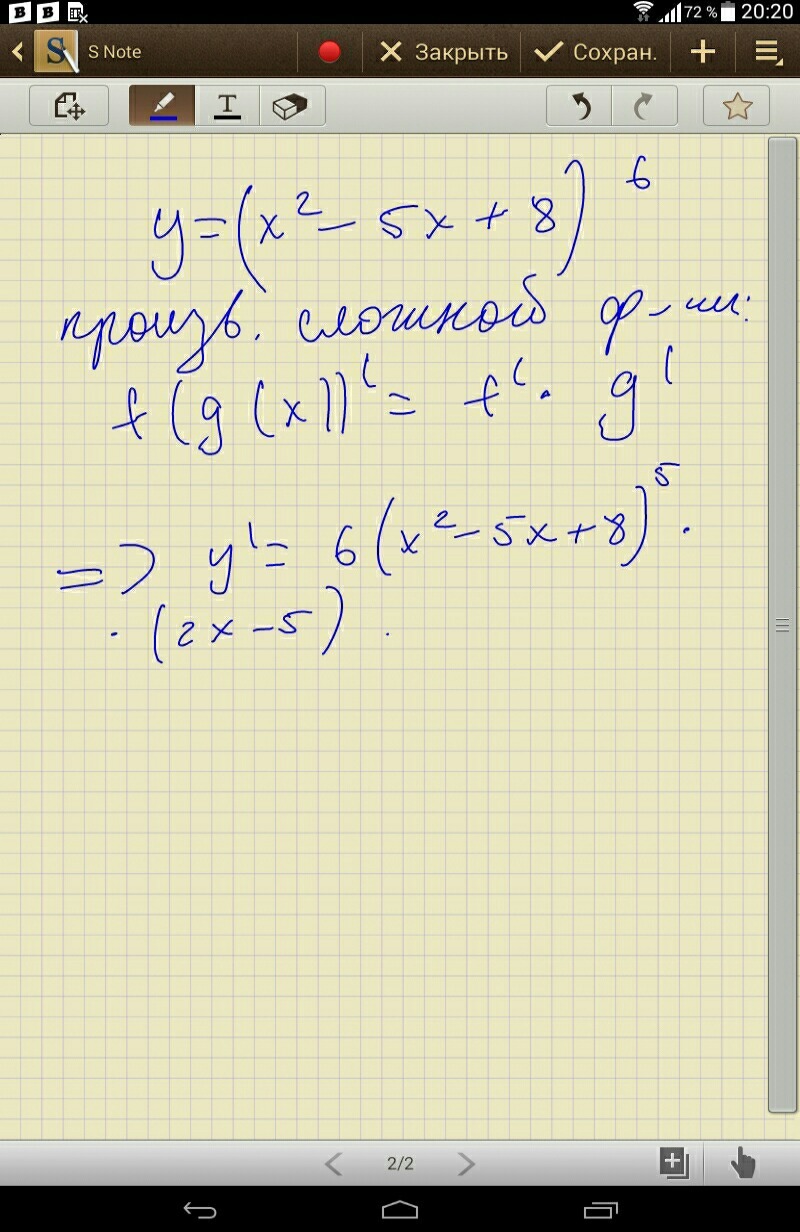 72 % 20:20
S Note Закрыть Сохран.
T
y=(x²- 5x + 8)⁶
произв. сложной ф-ии:
f(g(x))' = f' · g'
=> y' = 6(x²-5x+8)⁵ ·
· (2x-5).
2/2